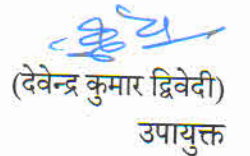 (देवेन्द्र कुमार द्विवेदी)
उपायुक्त